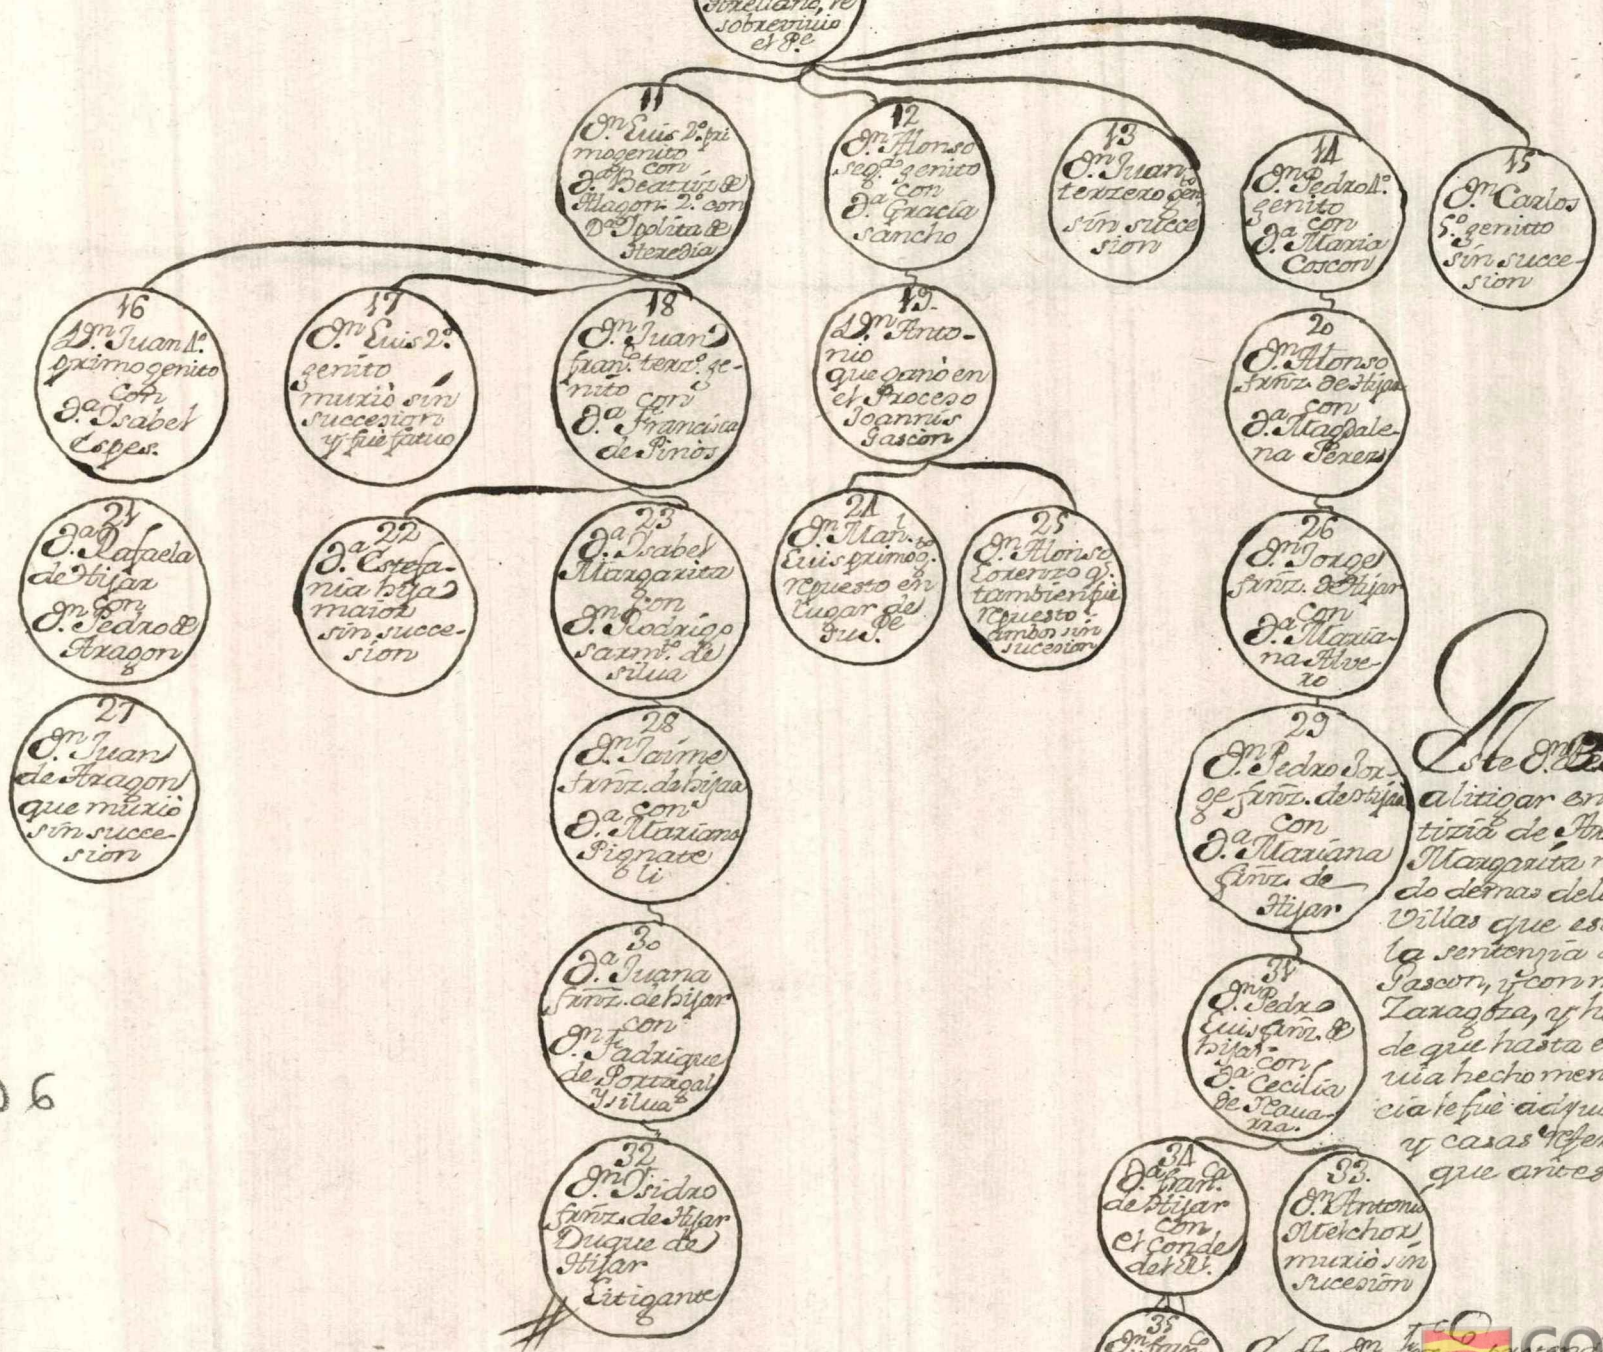 Arellano, re
sobrevivio
el P.e
11
D.n Luis 2.º pri
mogenito
con
D.a Beatriz de
Alagon 2.º con
D.a Ipolita de
Heredia
12
D.n Alonso
seg.do genito
con
D.a Gracia
sancho
13
D.n Juan
terzero gen.to
sin succe
sion
14
D.n Pedro 4.º
genito
con
D.a Maria
Coscon
15
D.n Carlos
5.º genitto
sin succe-
sion
16
D.n Juan 4.º
primogenito
con
D.a Isabel
Espes.
17
D.n Luis 2.º
genito
murio sin
succesion
y fue fatuo
18
D.n Juan
fran.co terz.o ge-
nito
con
D.a Francisca
de Pinos
19.
D.n Anto-
nio
que ganò en
el Proceso
Joannis
Gascon
20
D.n Alonso
frnz. de Hijar
con
D.a Magdale-
na Perez
21
D.a Rafaela
de Hijar
con
D.n Pedro de
Aragon
22
D.a Estefa-
nia hija
maior
sin succe-
sion
23
D.a Isabel
Margarita
con
D.n Rodrigo
sarm.to de
silua
24
D.n Man.l
Luis primog.to
repuesto en
lugar de
su P.e
25
D.n Alonso
Lorenzo q.
tambien fue
repuesto
ambos sin
sucesion
26
D.n Jorge
frnz. de Hijar
con
D.a Maria-
na Alve-
ro
27
D.n Juan
de Aragon
que murio
sin succe-
sion
28
D.n Jaime
frnz. de hijar
con
D.a Mariana
Pignate
li
29
D.n Pedro Jor-
ge frnz. de Hijar
con
D.a Mariana
frnz. de
Hijar
30
D.a Juana
frnz. de hijar
con
D.n Fadrique
de Portugal
Y silua
31
D.n Pedro
Luis frnz. de
hijar
con
D.a Cecilia
de Naua-
rra.
32
D.n Isidro
frnz. de Hijar
Duque de
Hijar
Litigante
34
D.a Fran.ca
de Hijar
con
el Conde
del
33.
D.n Antonio
Melchor
murio sin
sucesion
35
Este D.n
a litigar en
tizia de
Margarita
do demas del
Villas que es
la sentenzia
Pascon, y con
Zaragoza, y h
de que hasta e
uia hecho men
cia le fue adqu
y casas Refer
que antes
6
CO